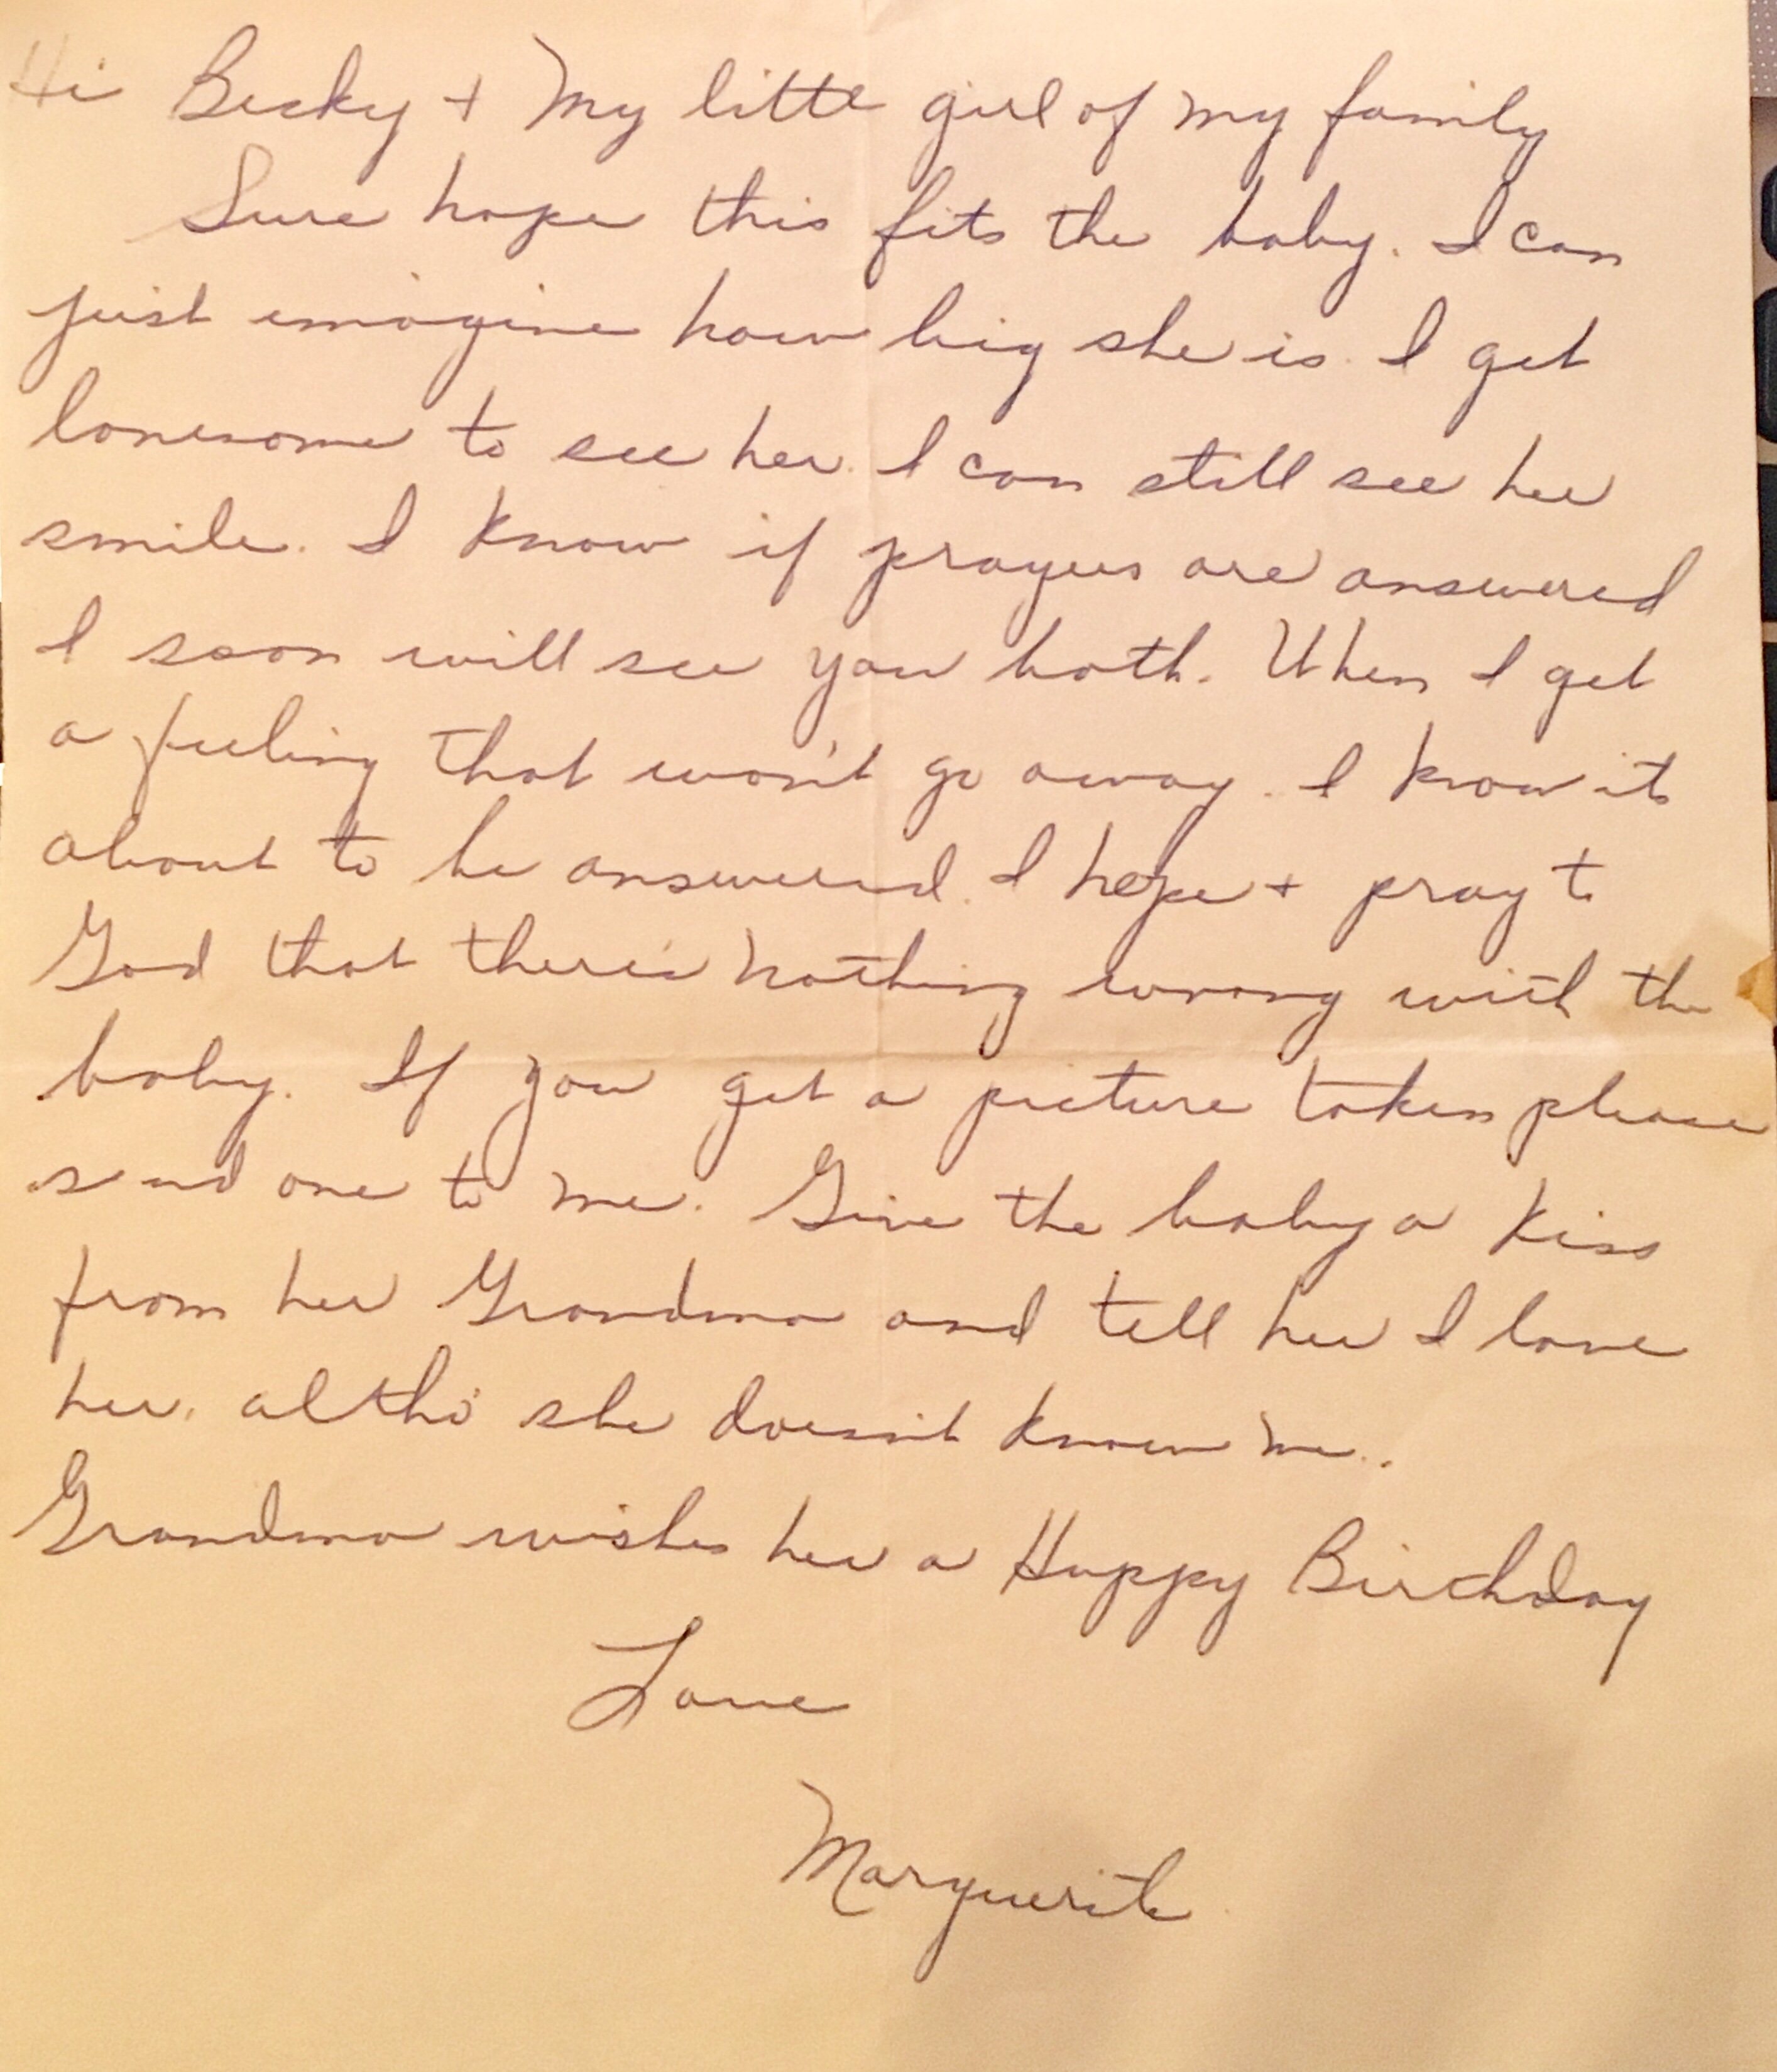 Hi Becky + My little girl of my family
Sure hope this fits the baby. I can
just imagine how big she is. I get
lonesome to see her. I can still see her
smile. I know if prayers are answered
I soon will see you both. When I get
a feeling that won't go away. I know its
about to be answered. I hope + pray to
God that there's nothing wrong with the
baby. If you get a picture taken please
send one to me. Give the baby a kiss
from her Grandma and tell her I love
her. altho' she doesn't know me..
Grandma wishes her a Happy Birthday
Love
Marguerite